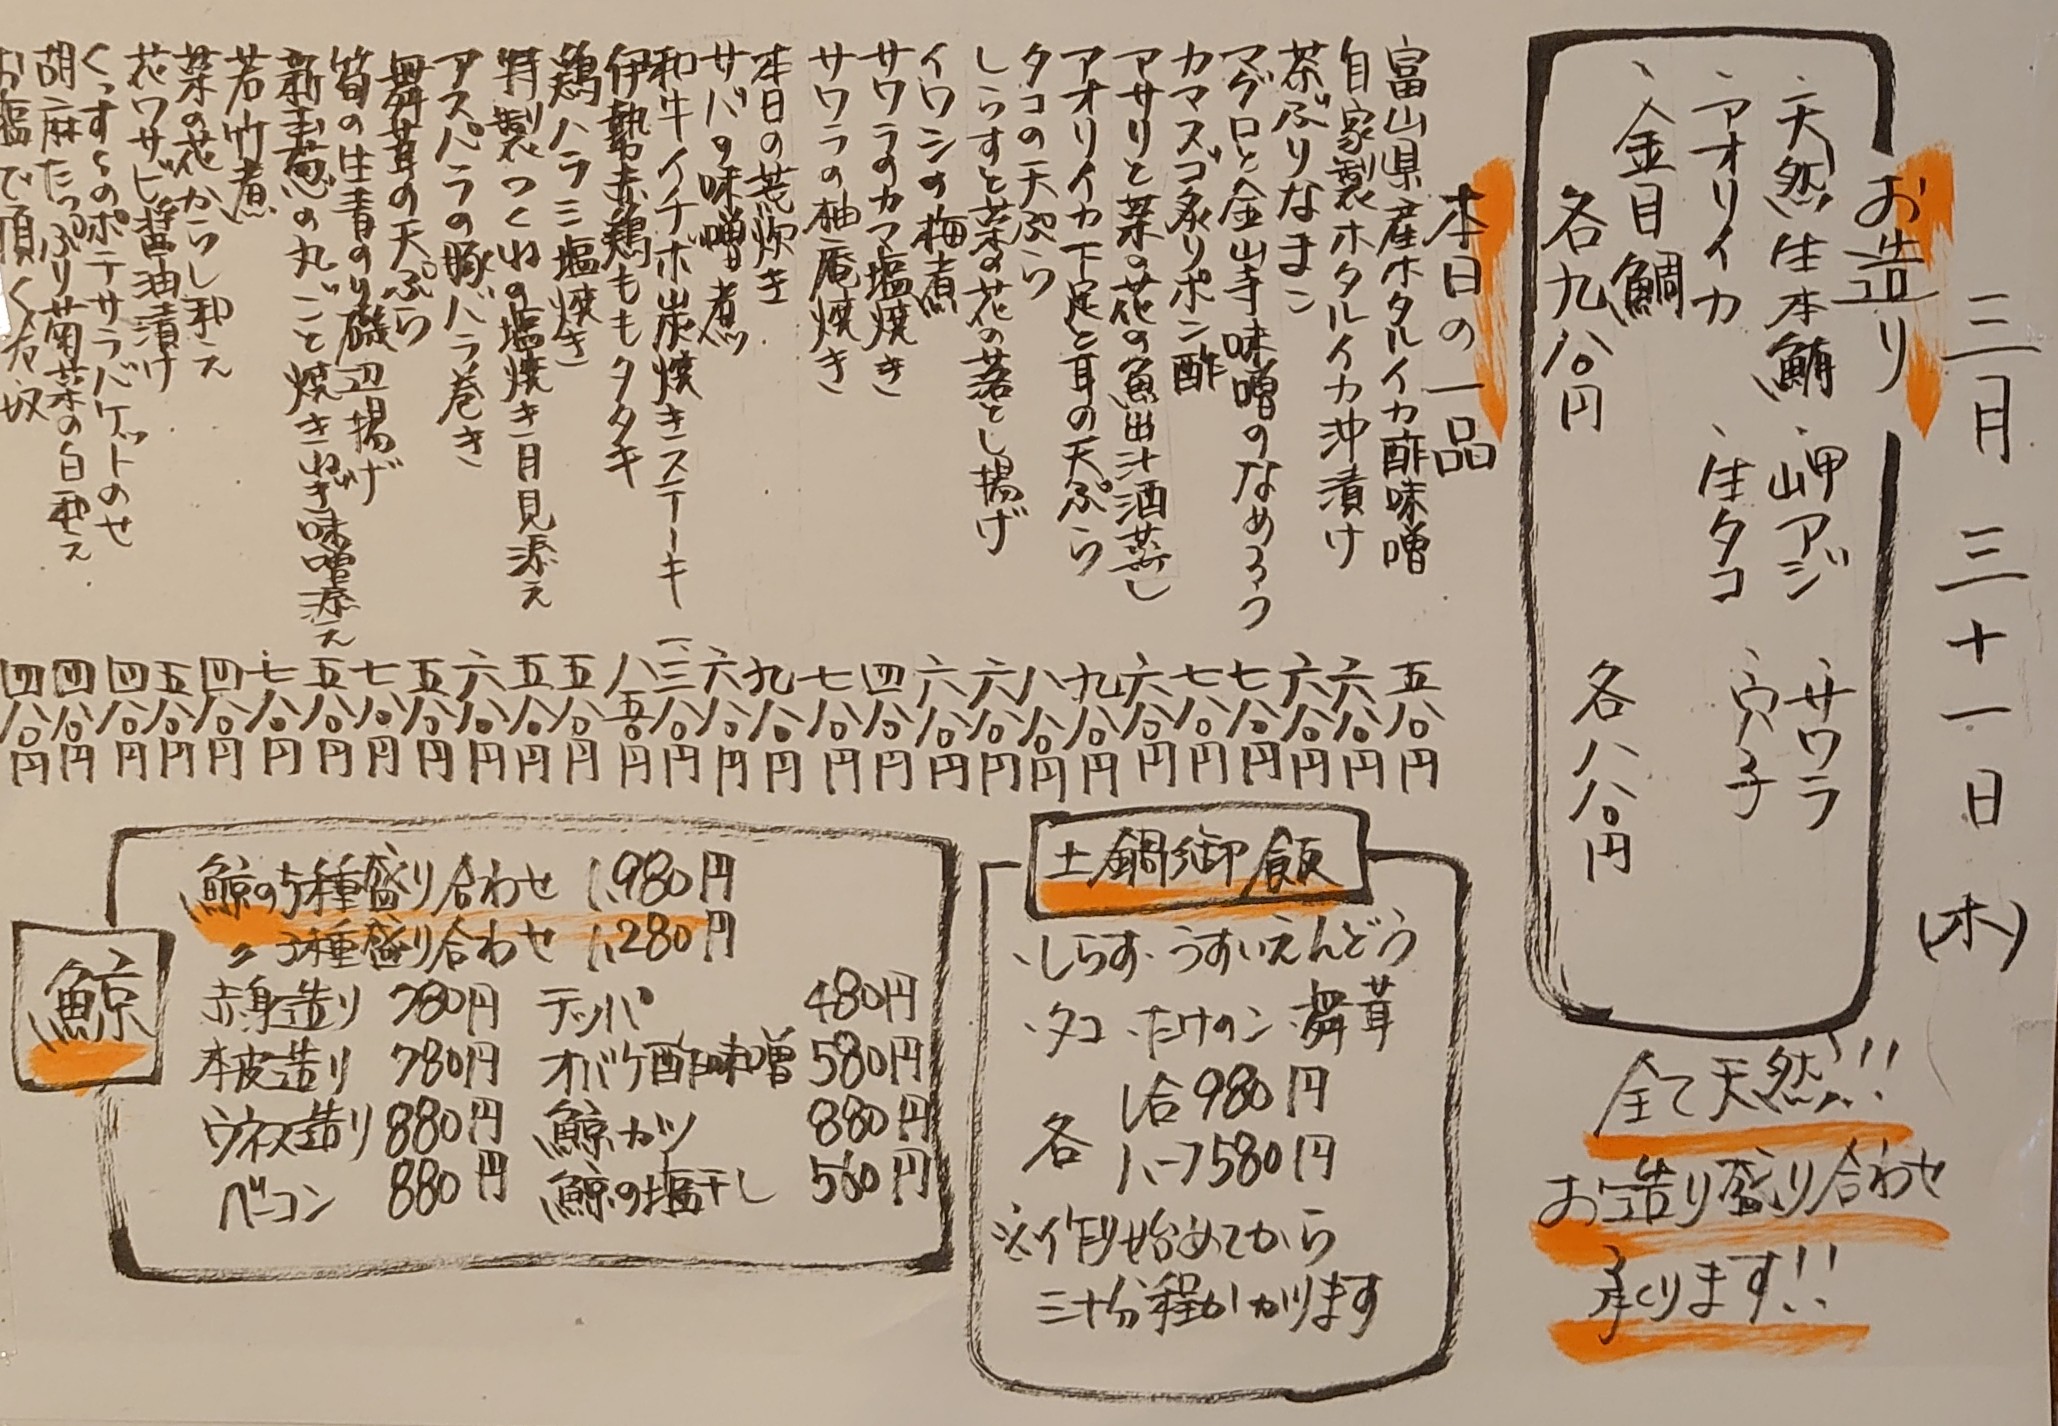 三月三十一日(木)
お造り
、天然生本鮪 、岬アジ 、サワラ
、アオリイカ 、生タコ 、穴子
、金目鯛
各九八〇円 各八八〇円
全て天然!!
お造り盛り合わせ
承ります!!
本日の一品
富山県産ホタルイカ酢味噌 五八〇円
自家製ホタルイカ沖漬け 六八〇円
茶ぶりなまこ 六八〇円
マグロと金山寺味噌のなめろう 七八〇円
カマスゴ炙りポン酢 七八〇円
アサリと菜の花の魚出汁酒蒸し 六八〇円
アオリイカ下足と耳の天ぷら 九八〇円
タコの天ぷら 八八〇円
しらすと菜の花の落とし揚げ 六八〇円
イワシの梅煮 六八〇円
サワラのカマ塩焼き 四八〇円
サワラの柚庵焼き 七八〇円
本日の荒炊き 九八〇円
サバの味噌煮 六八〇円
和牛イチボ炭焼きステーキ 一、三八〇円
伊勢赤鶏ももタタキ 八五〇円
鶏ハラミ塩焼き 五八〇円
特製つくねの塩焼き月見添え 五八〇円
アスパラの豚バラ巻き 六八〇円
舞茸の天ぷら 五八〇円
筍の生青のり磯辺揚げ 七八〇円
新玉葱の丸ごと焼きねぎ味噌添え 五八〇円
若竹煮 七八〇円
菜の花からし和え 四八〇円
花ワサビ醤油漬け 五八〇円
くっすものポテサラバケットのせ 四八〇円
胡麻たっぷり菊菜の白和え 四八〇円
お塩で頂く右奴 四八〇円
土鍋御飯
、しらす 、うすいえんどう
、タコ 、たけのこ 、舞茸
各 1合980円
ハーフ580円
※作り始めてから
三十分程かかります
鯨
鯨の5種盛り合わせ 1,980円
〃 3種盛り合わせ 1,280円
赤身造り 780円 テッパ 480円
本皮造り 780円 オバケ酢味噌 580円
ウネス造り 880円 鯨カツ 880円
ベーコン 880円 鯨の塩干し 560円